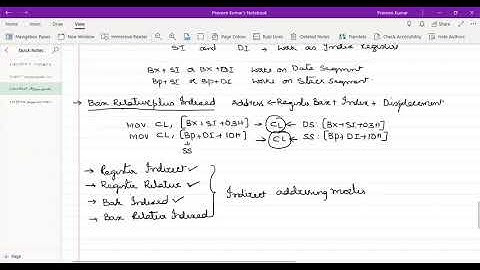 Praveen Kumar's Notebook
Praveen Kumar
File Home Insert Draw History Review View
Navigation Panes Normal View Dock to Desktop Immersive Reader Tab Color
Quick Notes
SI and DI → Work as Index Register
BX+SI or BX+DI Works on Data Segment
BP+SI or BP+DI Works on Stack Segment
→ Base Relative plus Indexed Address ← Register Base + Index + Displacement
MOV CL, [BX+SI+03H] → CL ← DS: [BX+SI+03H]
MOV CL, [BP+DI+10H] → CL ← SS: [BP+DI+10H]
SS
→ Register Indirect ✓
→ Register Relative ✓
→ Base Indexed ✓
→ Base Relative Indexed
Indirect addressing modes